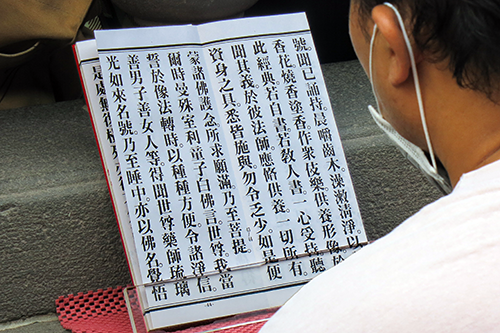 號。聞已誦持。晨嚼齒木。澡漱清淨。以
香花燒香塗香。作衆伎樂。供養形像。於
此經典。若自書。若教人書。一心受持。聽
聞其義。於彼法師。應脩供養。一切所有。
資身之具。悉皆施與。勿令乏少。如是便
蒙諸佛護念。所求願滿。乃至菩提。
爾時曼殊室利童子白佛言。世尊。我當
誓於像法轉時。以種種方便。令諸淨信。
善男子善女人等。得聞世尊藥師琉璃
光如來名號。乃至睡中。亦以佛名覺悟